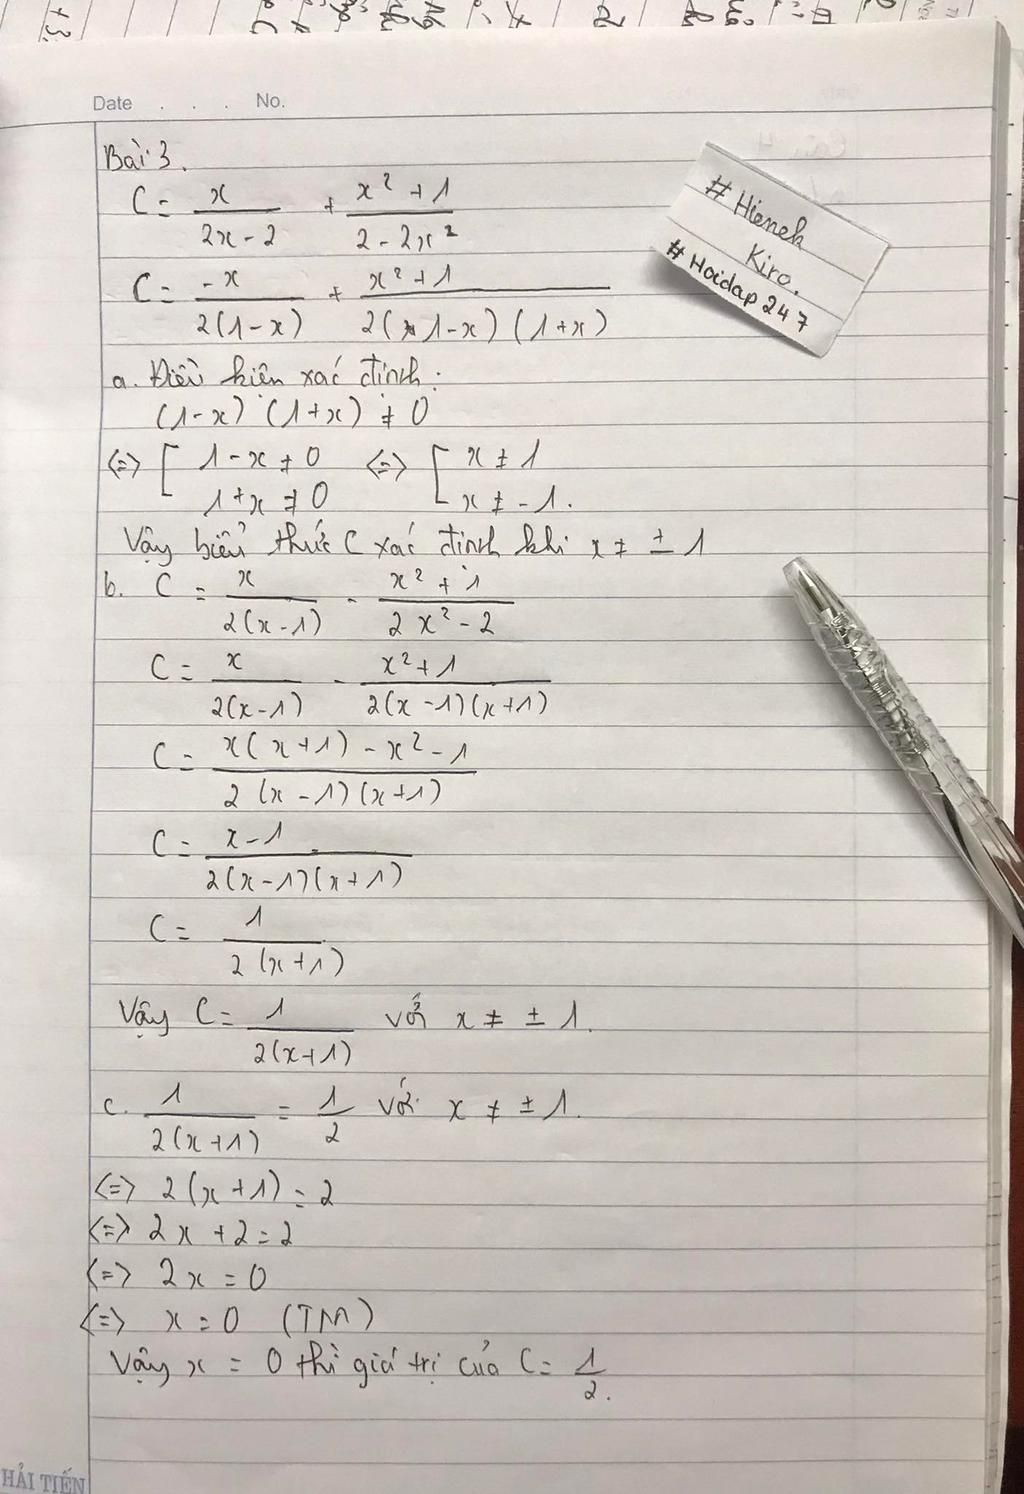 Date . . . No.
Bài 3.
C = x/(2x - 2) + (x² + 1)/(2 - 2x²)
C = -x/(2(1-x)) + (x² + 1)/(2(1-x)(1+x))
a. Điều kiện xác định:
(1-x)(1+x) ≠ 0
<=> [ 1-x ≠ 0 <=> [ x ≠ 1
1+x ≠ 0 x ≠ -1.
Vậy biểu thức C xác định khi x ≠ ± 1
b. C = x/(2(x-1)) - (x² + 1)/(2x² - 2)
C = x/(2(x-1)) - (x² + 1)/(2(x-1)(x+1))
C = (x(x+1) - x² - 1)/(2(x-1)(x+1))
C = (x-1)/(2(x-1)(x+1))
C = 1/(2(x+1))
Vậy C = 1/(2(x+1)) với x ≠ ± 1.
c. 1/(2(x+1)) = 1/2 với x ≠ ± 1.
<=> 2(x+1) = 2
<=> 2x + 2 = 2
<=> 2x = 0
<=> x = 0 (TM)
Vậy x = 0 thì giá trị của C = 1/2.
# Hienek
Kiro.
# Hoidap 247
HẢI TIẾN